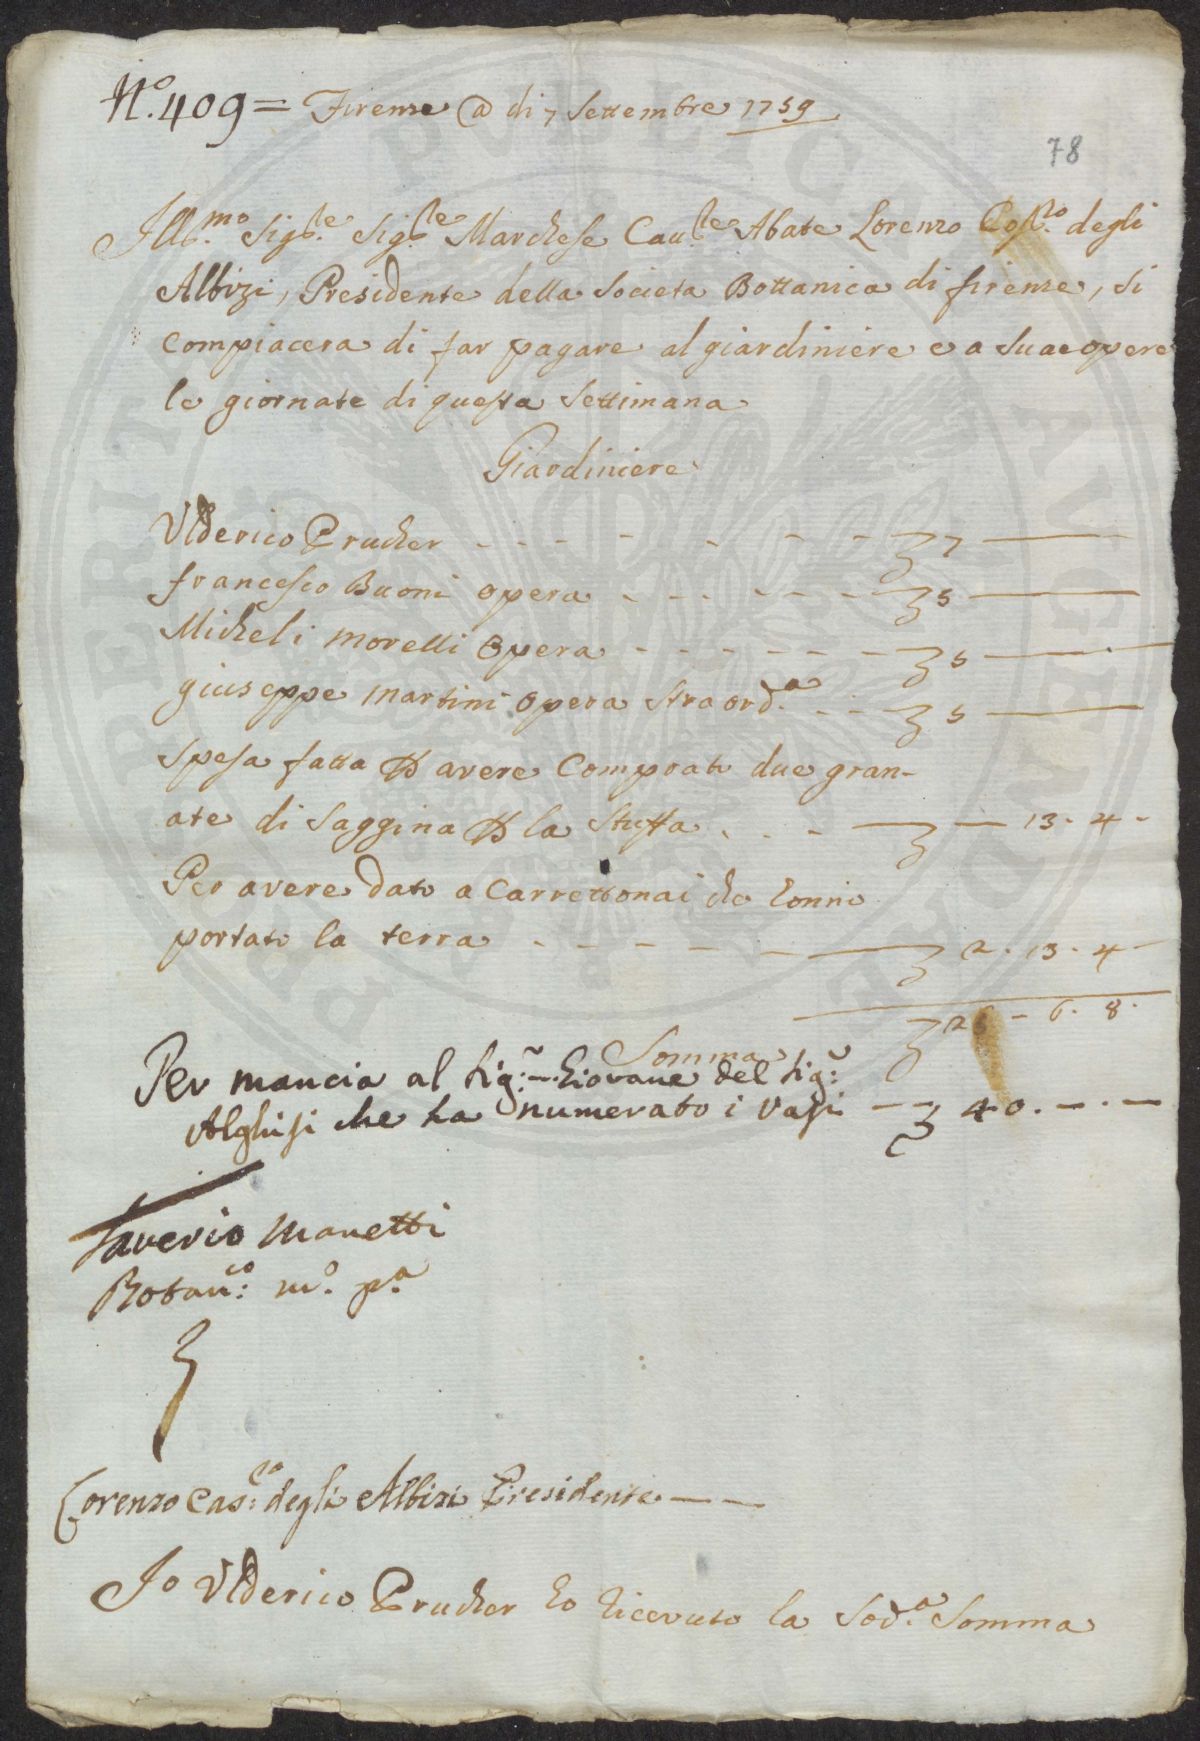 N.º 409 = Firenze @ di 7 Settembre 1759
78
Ill.mo Sig.re Sig.re Marchese Cau.re Abate Lorenzo degli
Albizi, Presidente della Societa Bottanica di firenze, si
compiacera di far pagare al giardiniere e a sua opere
le giornate di questa Settimana
Giardiniere
Vlderico Prucher - - - - - - - 7 —
francesco Buoni opera - - - - - - 5 —
Micheli Morelli Opera - - - - - - 5 —
giuseppe Martini opera Straord.a - - 5 —
spesa fatta p avere Comprati due gran-
ate di Saggina p la Stuffa . . - — 13 - 4 -
Per avere dato a Carrettonai che
portato la terra - - - - - 2 - 13 - 4 -
Somma 26 - 6 - 8 -
Per mancia al Sig.r Giovane del Sig.r
Alghisi che ha numerato i Vasi — 40. — . —
Saverio Manetti
Botan.co m.o p.a
Lorenzo Cas.ro degli Albizi Presidente — —
Io Vlderico Prucher ho riceuuto la Sod.a Somma
PVBLICAE
AVGENDAE
PROSPERITATI